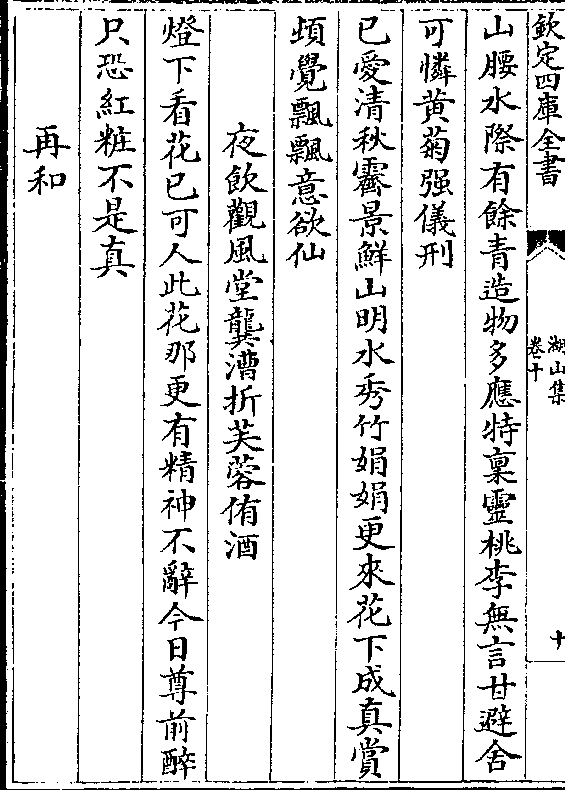 欽定四庫全書
湖山集
卷十
十
山腰水際有餘青造物多應特稟靈桃李無言甘避舍
可憐黄菊强儀刑
已愛清秋霽景鮮山明水秀竹娟娟更來花下成真賞
頓覺飄飄意欲仙
夜飲觀風堂龔漕折芙蓉侑酒
燈下看花已可人此花那更有精神不辭今日尊前醉
只恐紅粧不是真
再和